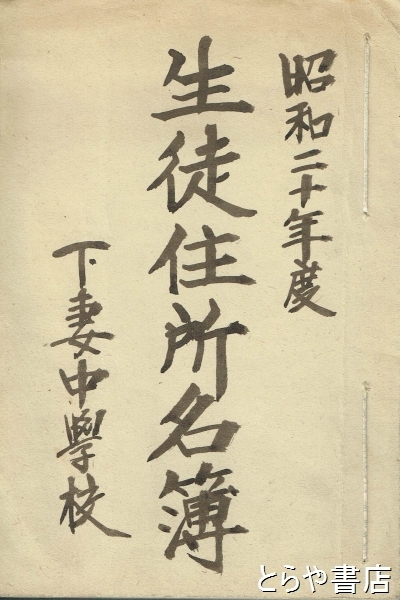 昭和二十年度
生徒住所名簿
下妻中學校
とらや書店